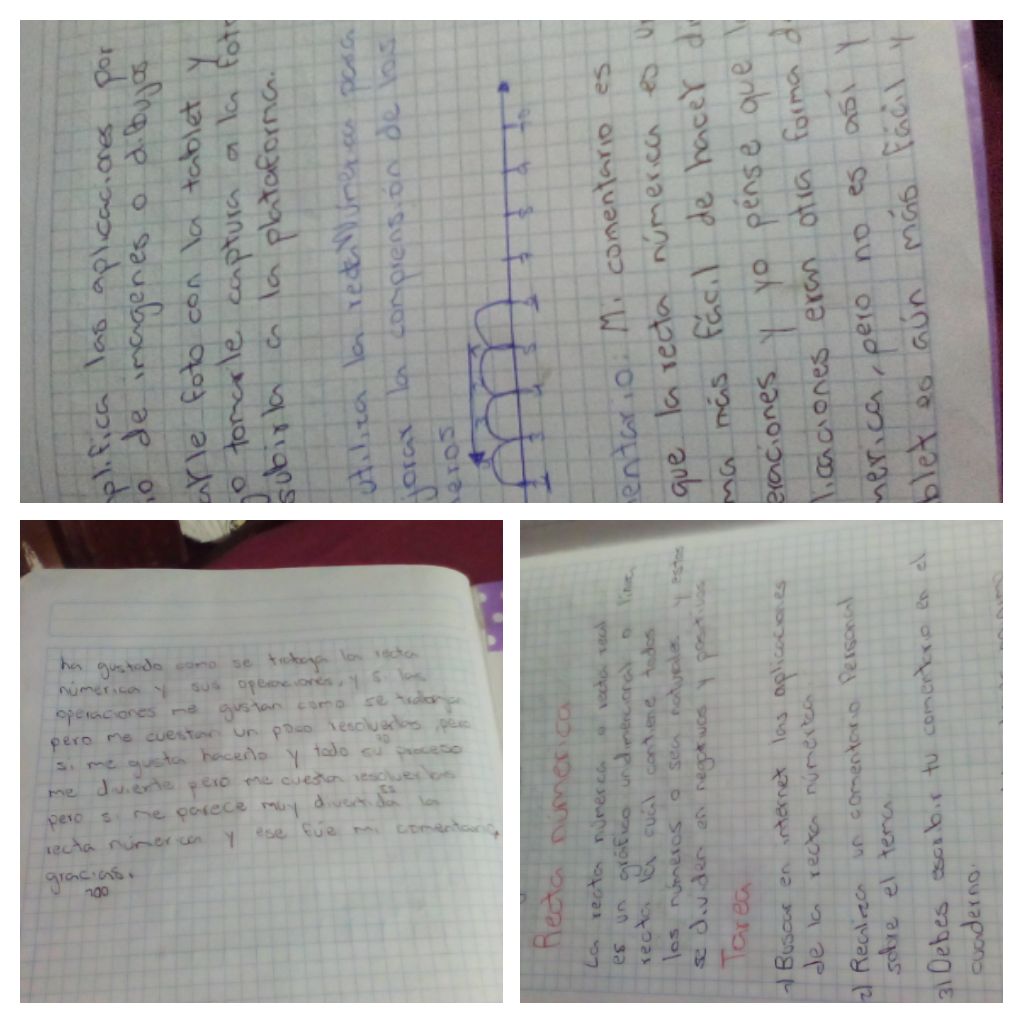 plifica las aplicaciones por
io de imagenes o dibujos
arle foto con la tablet y
go tomarle captura a la foto
subirla a la plataforma.
utiliza la recta númerica para
jorar la comprensión de los
meros
3 4 5 6 7 8 9 10
mentario: Mi comentario es
que la recta númerica es u
ma más fácil de hacer
eraciones y yo pénse que l
licaciones eran otra forma d
nerica, pero no es así y
blet es aún más fácil y
ha gustado como se trabaja la recta
númerica y sus operaciones, y si las
operaciones me gustan como se trabajan
pero me cuestan un poco resolverlas, pero
si me gusta hacerlo y todo su proceso
me divierte pero me cuesta resolverlas
pero si me parece muy divertida la
recta númerica y ese fúe mi comentario,
gracias.
100
Recta númerica
La recta númerica o recta real
es un gráfico unidimensional o línea
recta la cuál contiene todos
los números o sea naturales y estos
se dividen en negativos y positivos
Tarea
1) Buscar en internet las aplicaciones
de la recta númerica
2) Realiza un comentario Personal
sobre el tema.
3) Debes escribir tu comentario en el
cuaderno.